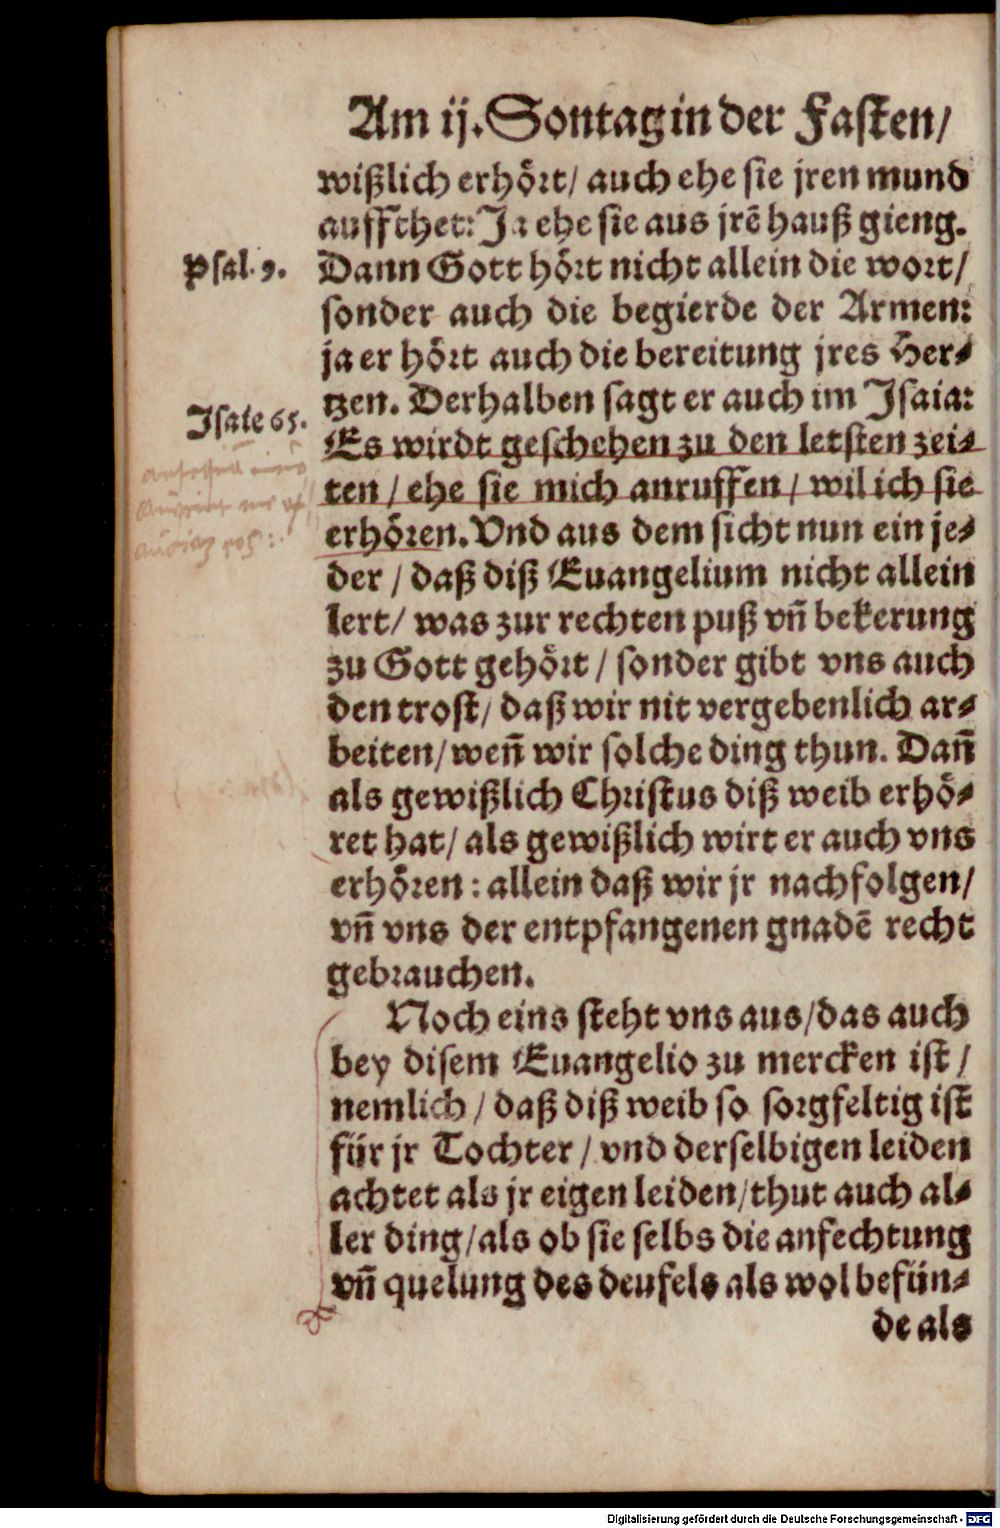 Am ij. Sontag in der Fasten/
wißlich erhört/ auch ehe sie jren mund
auffthet: Ja ehe sie aus jrē hauß gieng.
Psal. 9.
Dann Gott hört nicht allein die wort/
sonder auch die begierde der Armen:
ja er hört auch die bereitung jres Her⸗
tzen. Derhalben sagt er auch im Isaia:
Isaie 65.
Es wirdt geschehen zu den letsten zei⸗
ten / ehe sie mich anruffen / wil ich sie
erhören. Vnd aus dem sicht nun ein je⸗
der / daß diß Euangelium nicht allein
lert/ was zur rechten puß vn̄ bekerung
zu Gott gehört / sonder gibt vns auch
den trost/ daß wir nit vergebenlich ar⸗
beiten/ wen̄ wir solche ding thun. Dan̄
als gewißlich Christus diß weib erhö⸗
ret hat/ als gewißlich wirt er auch vns
erhören : allein daß wir jr nachfolgen/
vn̄ vns der entpfangenen gnadē recht
gebrauchen.
Noch eins steht vns aus/ das auch
bey disem Euangelio zu mercken ist /
nemlich / daß diß weib so sorgfeltig ist
für jr Tochter / vnd derselbigen leiden
achtet als jr eigen leiden/ thut auch al⸗
ler ding/ als ob sie selbs die anfechtung
vn̄ quelung des deufels als wol befün⸗
de als
Digitalisierung gefördert durch die Deutsche Forschungsgemeinschaft - DFG